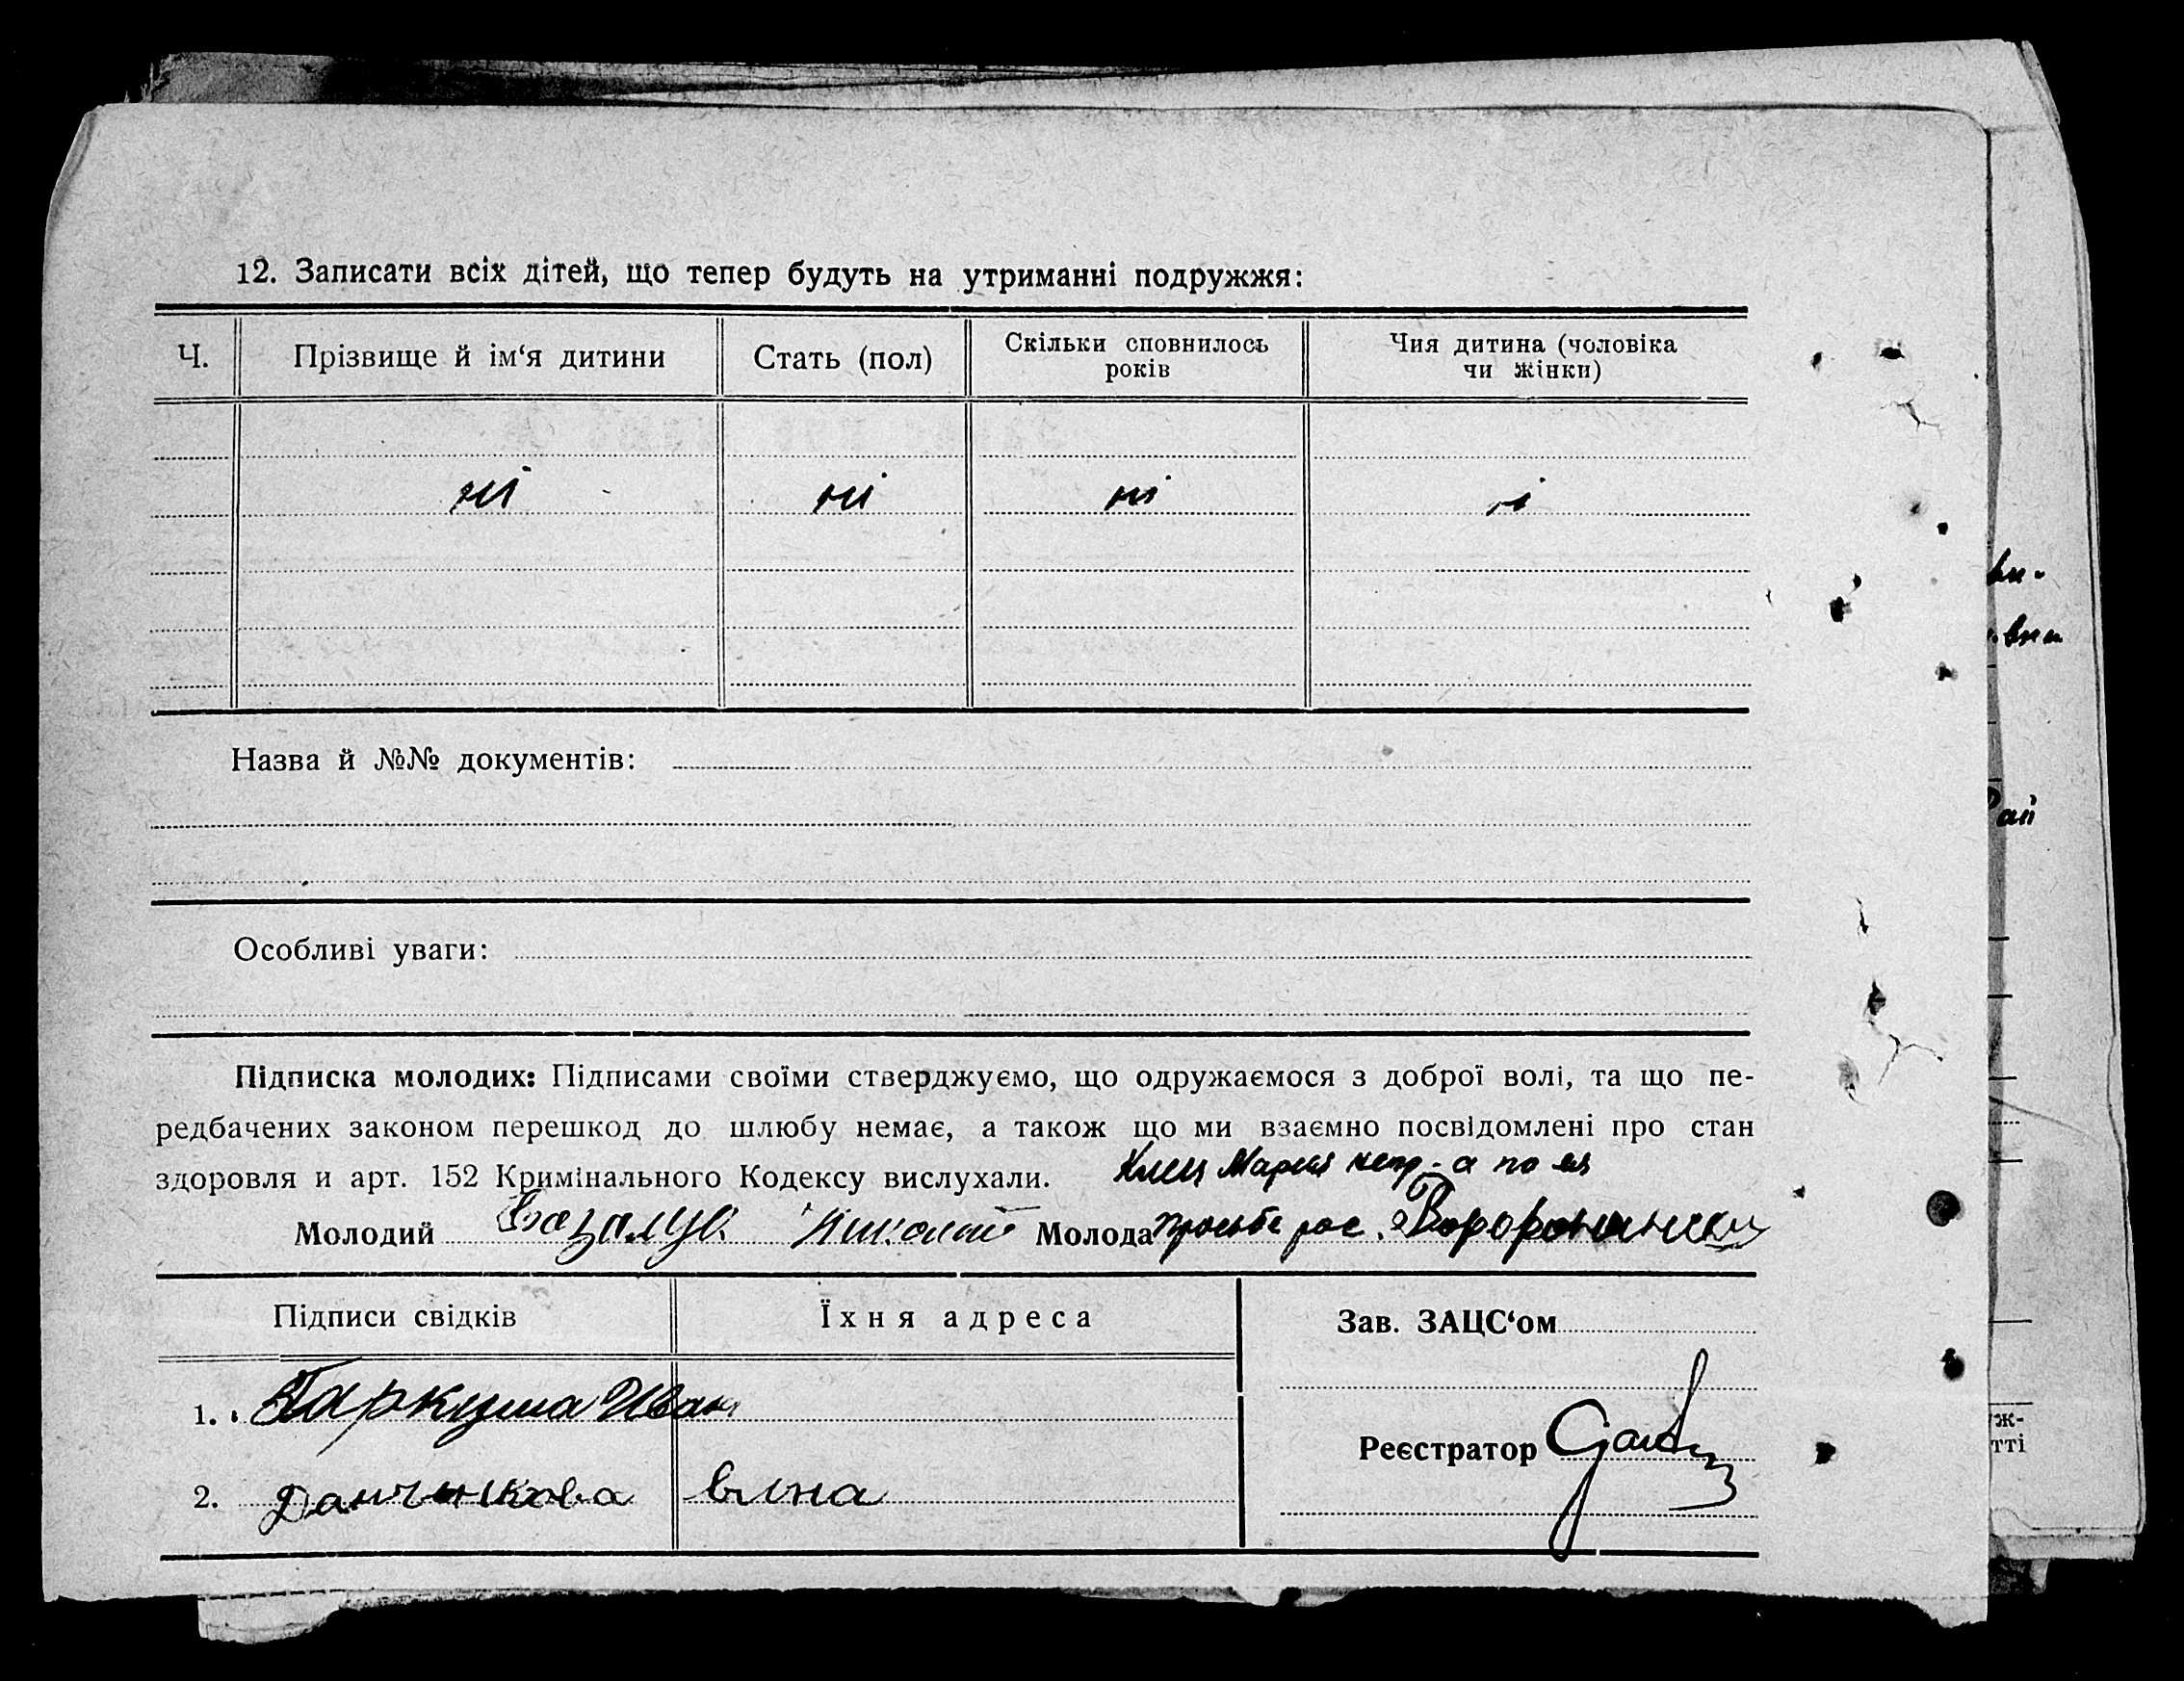 12. Записати всіх дітей, що тепер будуть на утриманні подружжя:
Ч. Прізвище й ім‘я дитини Стать (пол) Скільки сповнилось років Чия дитина (чоловіка чи жінки)
ні ні ні ні
Назва й №№ документів:
Особливі уваги:
Підписка молодих: Підписами своїми стверджуємо, що одружаємося з доброї волі, та що пе-
редбачених законом перешкод до шлюбу немає, а також що ми взаємно посвідомлені про стан
здоровля и арт. 152 Кримінального Кодексу вислухали.
Мария негр-а по ея
Молодий Молода просьбе рас.
Підписи свідків Їхня адреса Зав. ЗАЦС‘ом
1. Паркума Иван
Реєстратор
2.
вн.
Рай
уж-
тті